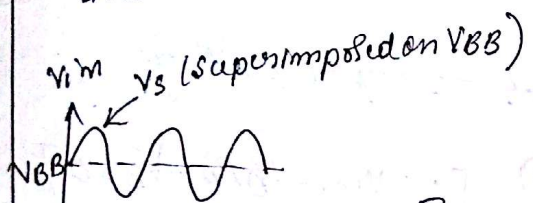 Vin
Vs (Superimposed on VBB)
VBB